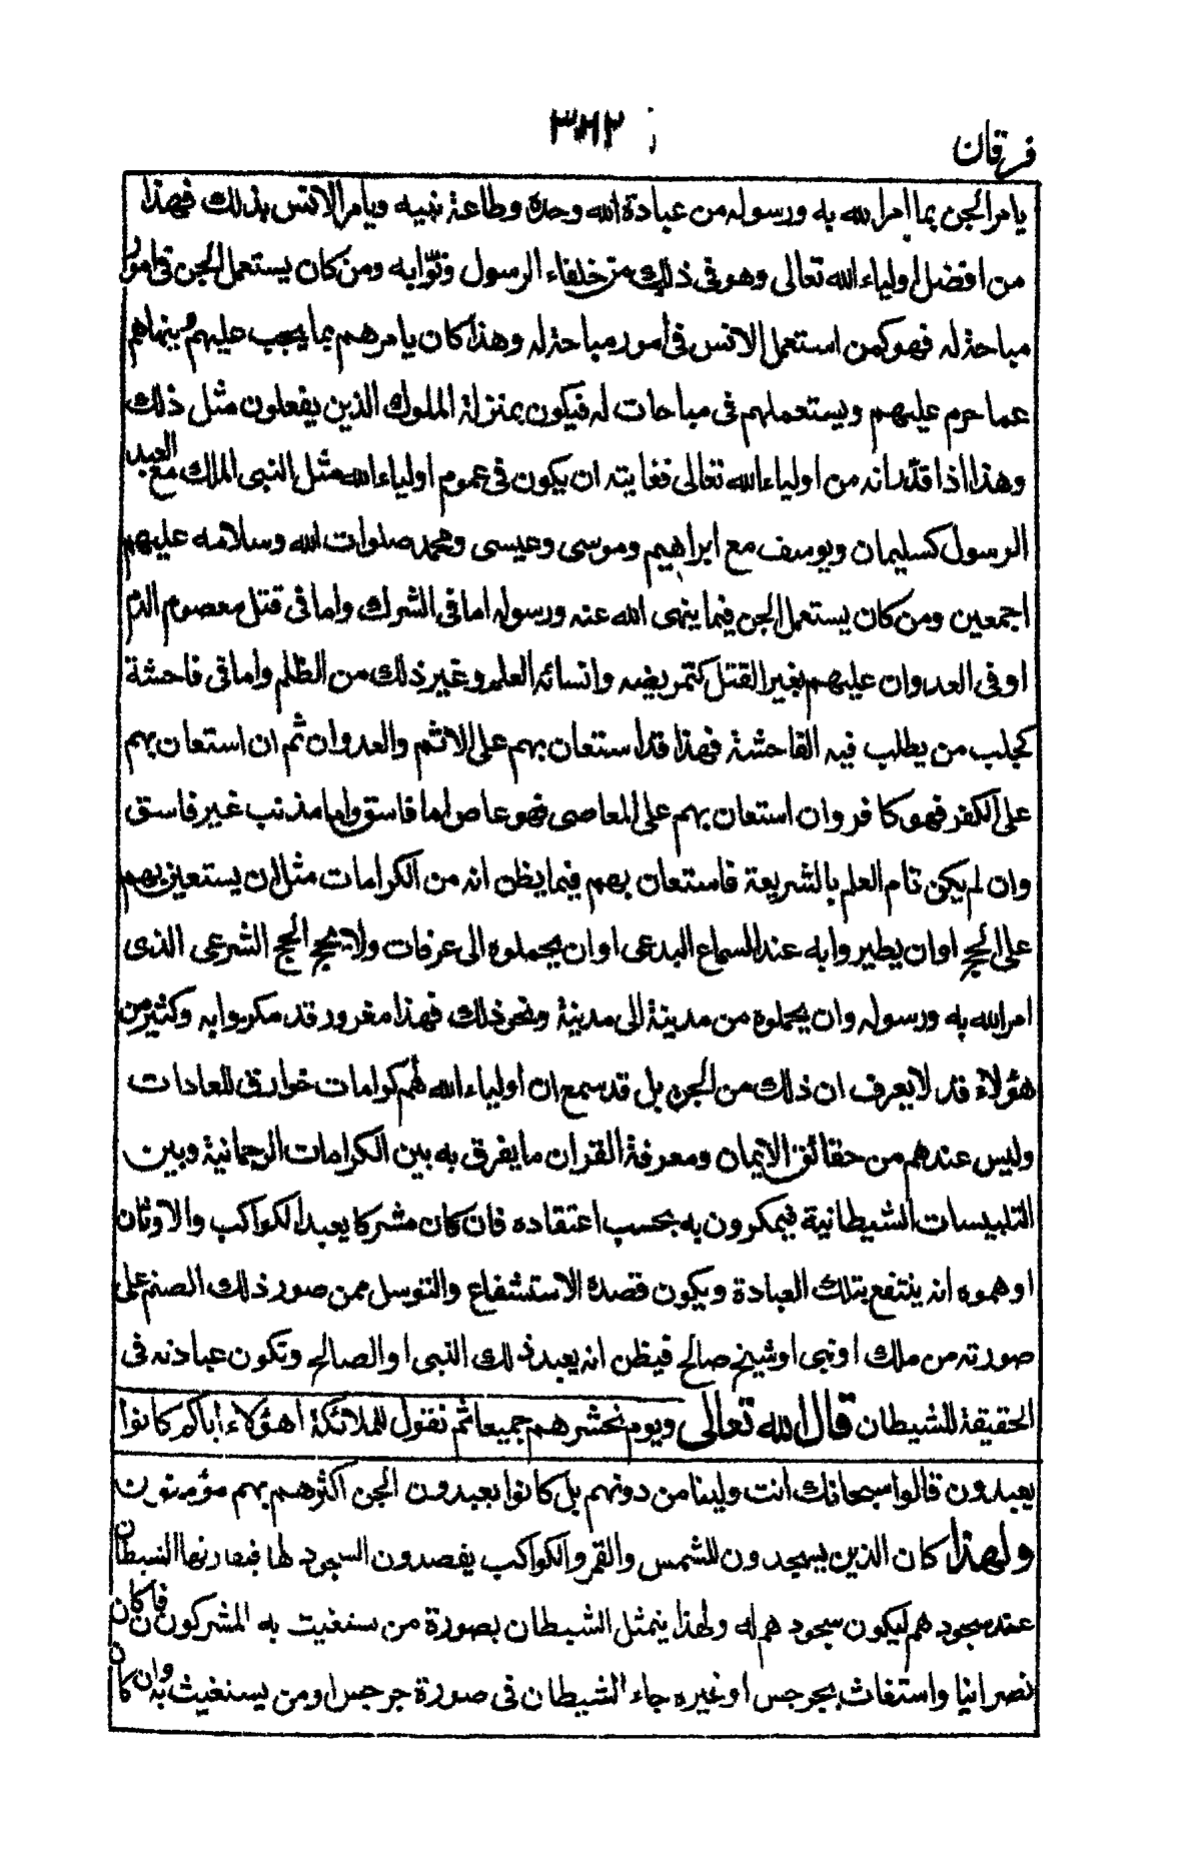 ٣٨٢
فرقان
يامر الجن بما امر الله به ورسوله من عبادة الله وحده وطاعة نبيه ويامر الانس بذلك فهذا
من افضل اولياء الله تعالى وهو فى ذلك من خلفاء الرسول ونوّابه ومن كان يستعمل الجن فى امور
مباحة له فهو كمن استعمل الانس فى أمور مباحة له وهذا كان يامرهم بما يجب عليهم وينهاهم
عما حرم عليهم ويستعملهم فى مباحات له فيكون بمنزلة الملوك الذين يفعلون مثل ذلك
وهذا اذا قدّر انه من اولياء الله تعالى فغايته ان يكون فى عموم اولياء الله مثل النبى الملك مع العبد
الرسول كسليمان ويوسف مع ابراهيم وموسى وعيسى ومحمد صلوات الله وسلامه عليهم
اجمعين ومن كان يستعمل الجن فيما ينهى الله عنه ورسوله اما فى الشرك واما فى قتل معصوم الدم
او فى العدوان عليهم بغير القتل كتمريضه وانسائه العلم وغير ذلك من الظلم وأما فى فاحشة
كجلب من يطلب فيه الفاحشة فهذا قد استعان بهم على الاثم والعدوان ثم ان استعان بهم
على الكفر فهو كافر وان استعان بهم على المعاصى فهو عاص اما فاسق واما مذنب غير فاسق
وان لم يكن تام العلم بالشريعة فاستعان بهم فيما يظن انه من الكرامات مثل ان يستعين بهم
على الحج او ان يطيروا به عند السماع البدعى او ان يحملوه الى عرفات ولا يحج الحج الشرعى الذى
امر الله به ورسوله وان يحملوه من مدينة الى مدينة ونحو ذلك فهذا مغرور قد مكروا به وكثير من
هؤلاء قد لا يعرف ان ذلك من الجن بل قد سمع ان اولياء الله لهم كرامات خوارق للعادات
وليس عندهم من حقائق الايمان ومعرفة القران ما يفرق به بين الكرامات الرحمانية وبين
التلبيسات الشيطانية فيمكرون به بحسب اعتقاده فان كان مشركا يعبد الكواكب والاوثان
اوهموه انه ينتفع بتلك العبادة ويكون قصده الاستشفاع والتوسل ممن صور ذلك الصنم على
صورته من ملك او نبى او شيخ صالح فيظن انه يعبد ذلك النبى او الصالح وتكون عبادته فى
الحقيقة للشيطان قال الله تعالى ويوم نحشرهم جميعا ثم نقول للملائكة اهؤلاء اياكم كانوا
يعبدون قالوا سبحانك انت ولينا من دونهم بل كانوا يعبدون الجن اكثرهم بهم مؤمنون
ولهذا كان الذين يسجدون للشمس والقمر والكواكب يقصدون السجود لها فيقارنها الشيطان
عند سجودهم ليكون سجودهم له ولهذا يتمثل الشيطان بصورة من يستغيث به المشركون فان كان
نصرانيا واستغاث بجرجس او غيره جاء الشيطان فى صورة جرجس او من يستغيث به وان كان